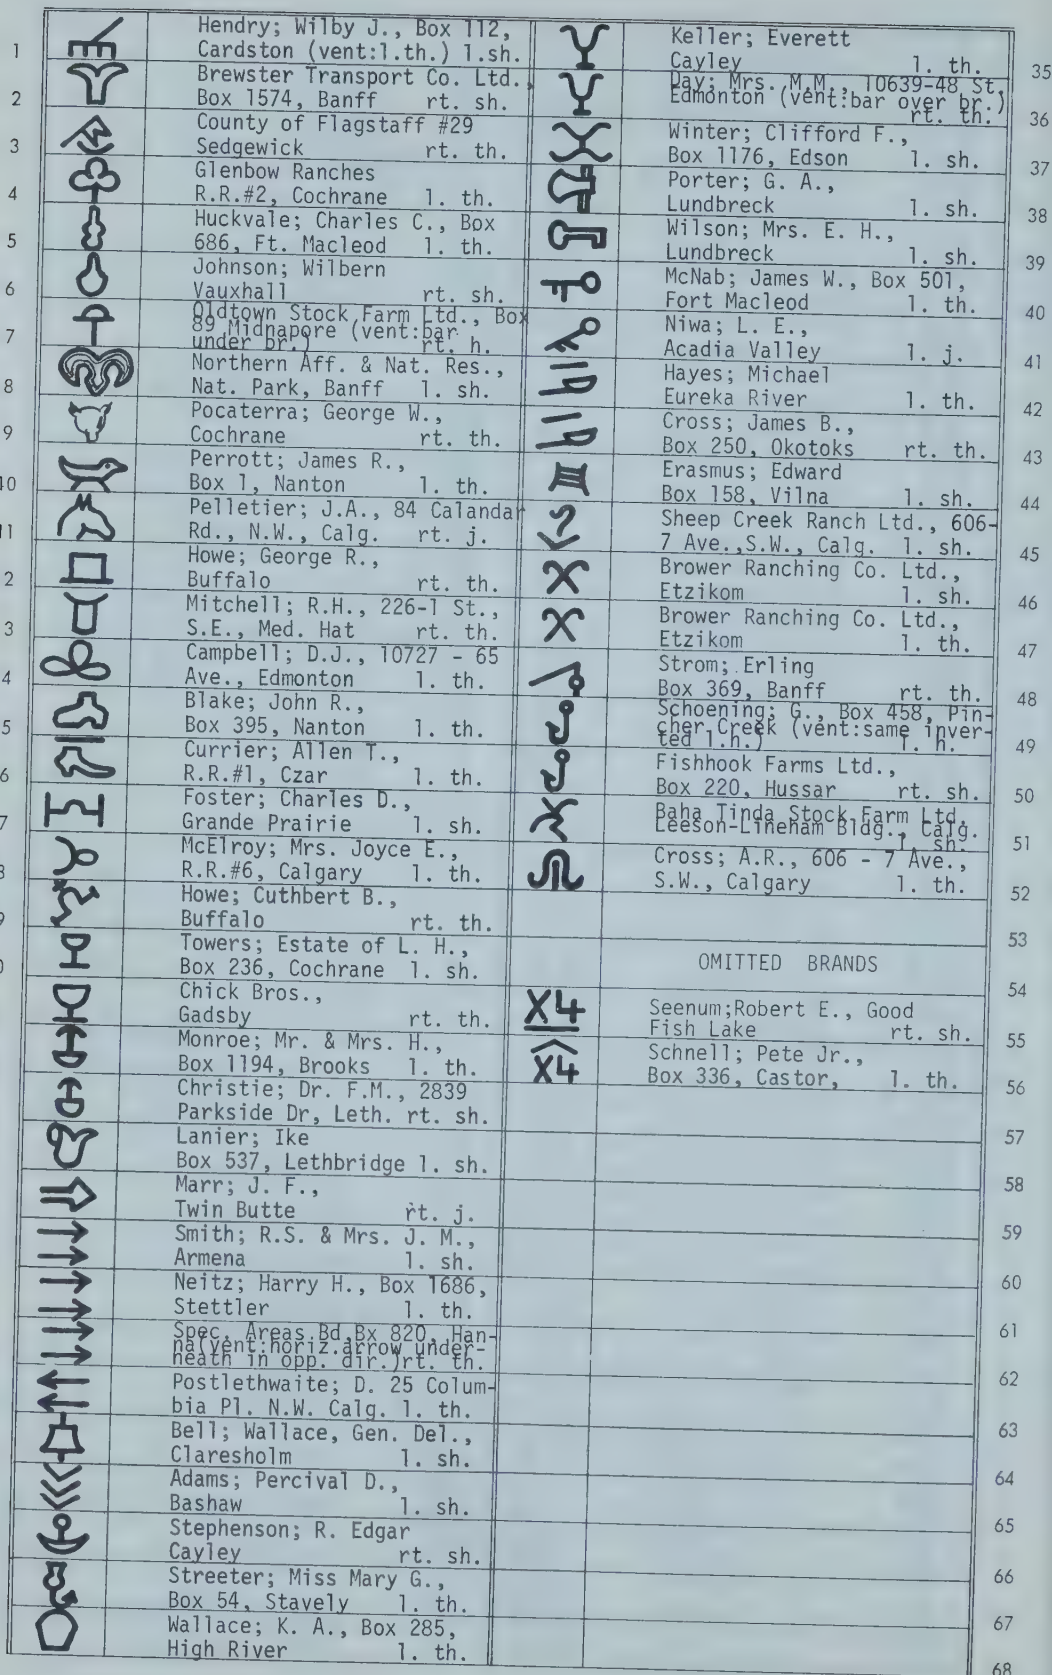 1
Hendry; Wilby J., Box 112,
Cardston (vent:l.th.) l.sh.
2
Brewster Transport Co. Ltd.,
Box 1574, Banff rt. sh.
3
County of Flagstaff #29
Sedgewick rt. th.
4
Glenbow Ranches
R.R.#2, Cochrane l. th.
5
Huckvale; Charles C., Box
686, Ft. Macleod l. th.
6
Johnson; Wilbern
Vauxhall rt. sh.
7
Oldtown Stock Farm Ltd., Box
89 Midnapore (vent:bar
under br.) rt. h.
8
Northern Aff. & Nat. Res.,
Nat. Park, Banff l. sh.
9
Pocaterra; George W.,
Cochrane rt. th.
10
Perrott; James R.,
Box 1, Nanton l. th.
11
Pelletier; J.A., 84 Calandar
Rd., N.W., Calg. rt. j.
2
Howe; George R.,
Buffalo rt. th.
3
Mitchell; R.H., 226-1 St.,
S.E., Med. Hat rt. th.
4
Campbell; D.J., 10727 - 65
Ave., Edmonton l. th.
5
Blake; John R.,
Box 395, Nanton l. th.
6
Currier; Allen T.,
R.R.#1, Czar l. th.
7
Foster; Charles D.,
Grande Prairie l. sh.
8
McElroy; Mrs. Joyce E.,
R.R.#6, Calgary l. th.
9
Howe; Cuthbert B.,
Buffalo rt. th.
0
Towers; Estate of L. H.,
Box 236, Cochrane l. sh.
Chick Bros.,
Gadsby rt. th.
Monroe; Mr. & Mrs. H.,
Box 1194, Brooks l. th.
Christie; Dr. F.M., 2839
Parkside Dr, Leth. rt. sh.
Lanier; Ike
Box 537, Lethbridge l. sh.
Marr; J. F.,
Twin Butte rt. j.
Smith; R.S. & Mrs. J. M.,
Armena l. sh.
Neitz; Harry H., Box 1686,
Stettler l. th.
Spec. Areas Bd,Bx 820, Han-
na(vent:horiz.arrow under-
neath in opp. dir.)rt. th.
Postlethwaite; D. 25 Colum-
bia Pl. N.W. Calg. l. th.
Bell; Wallace, Gen. Del.,
Claresholm l. sh.
Adams; Percival D.,
Bashaw l. sh.
Stephenson; R. Edgar
Cayley rt. sh.
Streeter; Miss Mary G.,
Box 54, Stavely l. th.
Wallace; K. A., Box 285,
High River l. th.
Keller; Everett
Cayley l. th.
35
Day; Mrs. M.M., 10639-48 St,
Edmonton (vent:bar over br.)
rt. th.
36
Winter; Clifford F.,
Box 1176, Edson l. sh.
37
Porter; G. A.,
Lundbreck l. sh.
38
Wilson; Mrs. E. H.,
Lundbreck l. sh.
39
McNab; James W., Box 501,
Fort Macleod l. th.
40
Niwa; L. E.,
Acadia Valley l. j.
41
Hayes; Michael
Eureka River l. th.
42
Cross; James B.,
Box 250, Okotoks rt. th.
43
Erasmus; Edward
Box 158, Vilna l. sh.
44
Sheep Creek Ranch Ltd., 606-
7 Ave.,S.W., Calg. l. sh.
45
Brower Ranching Co. Ltd.,
Etzikom l. sh.
46
Brower Ranching Co. Ltd.,
Etzikom l. th.
47
Strom; Erling
Box 369, Banff rt. th.
48
Schoening; G., Box 458, Pin-
cher Creek (vent:same inver-
ted l.h.) l. h.
49
Fishhook Farms Ltd.,
Box 220, Hussar rt. sh.
50
Baha Tinda Stock Farm Ltd,
Leeson-Lineham Bldg., Calg.
l. sh.
51
Cross; A.R., 606 - 7 Ave.,
S.W., Calgary l. th.
52
53
OMITTED BRANDS
54
X4
Seenum;Robert E., Good
Fish Lake rt. sh.
55
X4
Schnell; Pete Jr.,
Box 336, Castor, l. th.
56
57
58
59
60
61
62
63
64
65
66
67
68